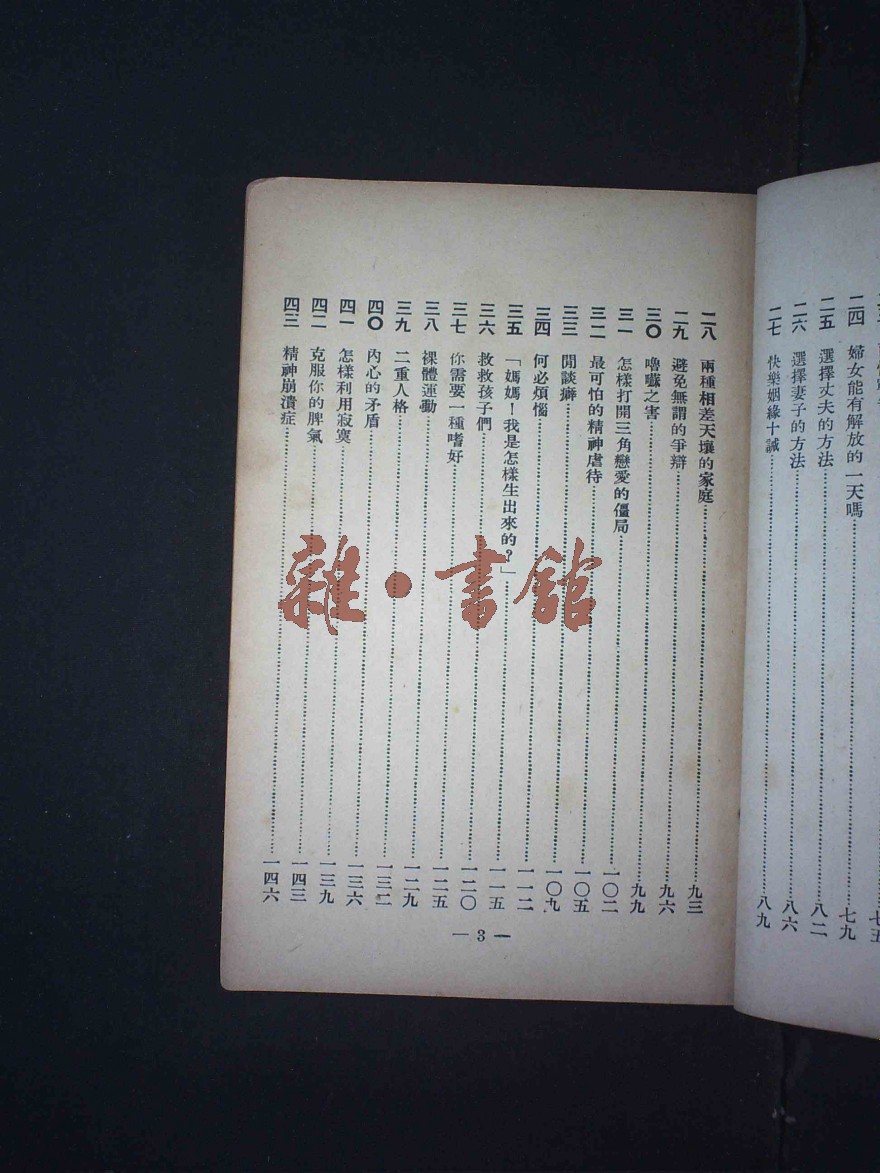 二四 婦女能有解放的一天嗎 七九
二五 選擇丈夫的方法 八二
二六 選擇妻子的方法 八六
二七 快樂姻緣十誡 八九
二八 兩種相差天壤的家庭 九三
二九 避免無謂的爭辯 九六
三〇 嚕囌之害 九九
三一 怎樣打開三角戀愛的僵局 一〇二
三二 最可怕的精神虐待 一〇五
三三 閒談癖 一〇九
三四 何必煩惱 一一二
三五 「媽媽！我是怎樣生出來的？」 一一五
三六 救救孩子們 一二〇
三七 你需要一種嗜好 一二五
三八 裸體運動 一二九
三九 二重人格 一三二
四〇 內心的矛盾 一三六
四一 怎樣利用寂寞 一三九
四二 克服你的脾氣 一四三
四三 精神崩潰症 一四六
— 3 —
雜·書館